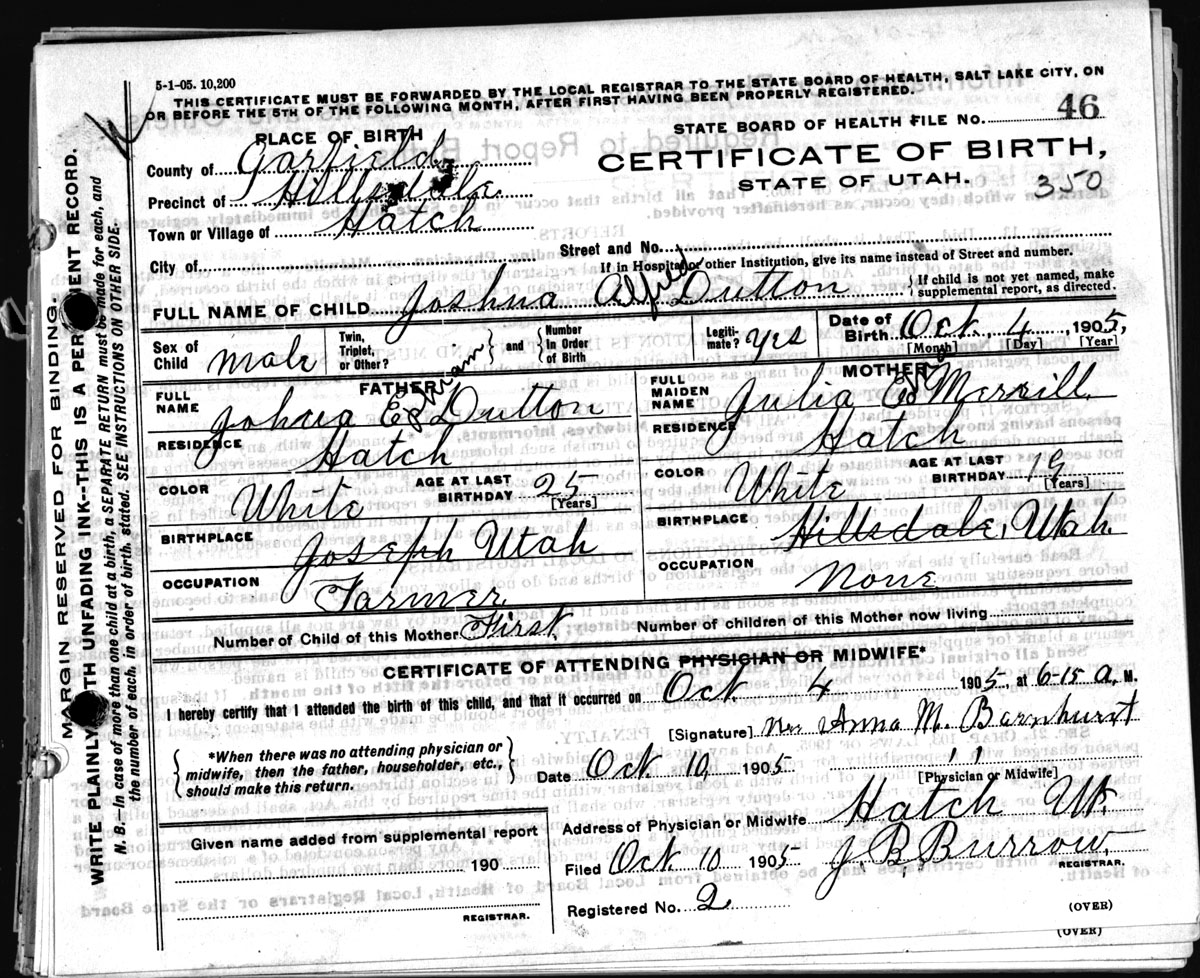 5-1-05. 10,200
THIS CERTIFICATE MUST BE FORWARDED BY THE LOCAL REGISTRAR TO THE STATE BOARD OF HEALTH, SALT LAKE CITY, ON
OR BEFORE THE 5TH OF THE FOLLOWING MONTH, AFTER FIRST HAVING BEEN PROPERLY REGISTERED.
PLACE OF BIRTH
STATE BOARD OF HEALTH FILE NO. 46
County of Garfield
CERTIFICATE OF BIRTH,
STATE OF UTAH. 350
Precinct of Hillsdale
Town or Village of Hatch
City of
Street and No.
If in Hospital or other Institution, give its name instead of Street and number.
FULL NAME OF CHILD Joshua Alfred Dutton
If child is not yet named, make supplemental report, as directed.
Sex of Child Male
Twin, Triplet, or Other?
and
Number In Order of Birth
Legitimate? Yes
Date of Birth Oct. 4, 1905,
[Month] [Day] [Year]
FATHER
FULL NAME Dutton
RESIDENCE Hatch
COLOR White
AGE AT LAST BIRTHDAY 25
[Years]
BIRTHPLACE Joseph Utah
OCCUPATION Farmer
MOTHER
FULL MAIDEN NAME Julia Merrill
RESIDENCE Hatch
COLOR White
AGE AT LAST BIRTHDAY 19
[Years]
BIRTHPLACE Hillsdale, Utah.
OCCUPATION None
Number of Child of this Mother First
Number of children of this Mother now living
CERTIFICATE OF ATTENDING PHYSICIAN OR MIDWIFE*
I hereby certify that I attended the birth of this child, and that it occurred on Oct. 4 1905, at 6-15 a. M.
[Signature] Mrs Anna M. Barnhurst
*When there was no attending physician or midwife, then the father, householder, etc., should make this return.
Date Oct. 10, 1905
" "
[Physician or Midwife]
Given name added from supplemental report
190
REGISTRAR.
Address of Physician or Midwife Hatch Ut.
Filed Oct 10 1905 J. B. Burrow.
REGISTRAR.
Registered No. 2
(OVER)
(OVER)
MARGIN RESERVED FOR BINDING.
WRITE PLAINLY WITH UNFADING INK--THIS IS A PERMANENT RECORD.
N. B.—In case of more than one child at a birth, a SEPARATE RETURN must be made for each, and
the number of each, in order of birth, stated. SEE INSTRUCTIONS ON OTHER SIDE.